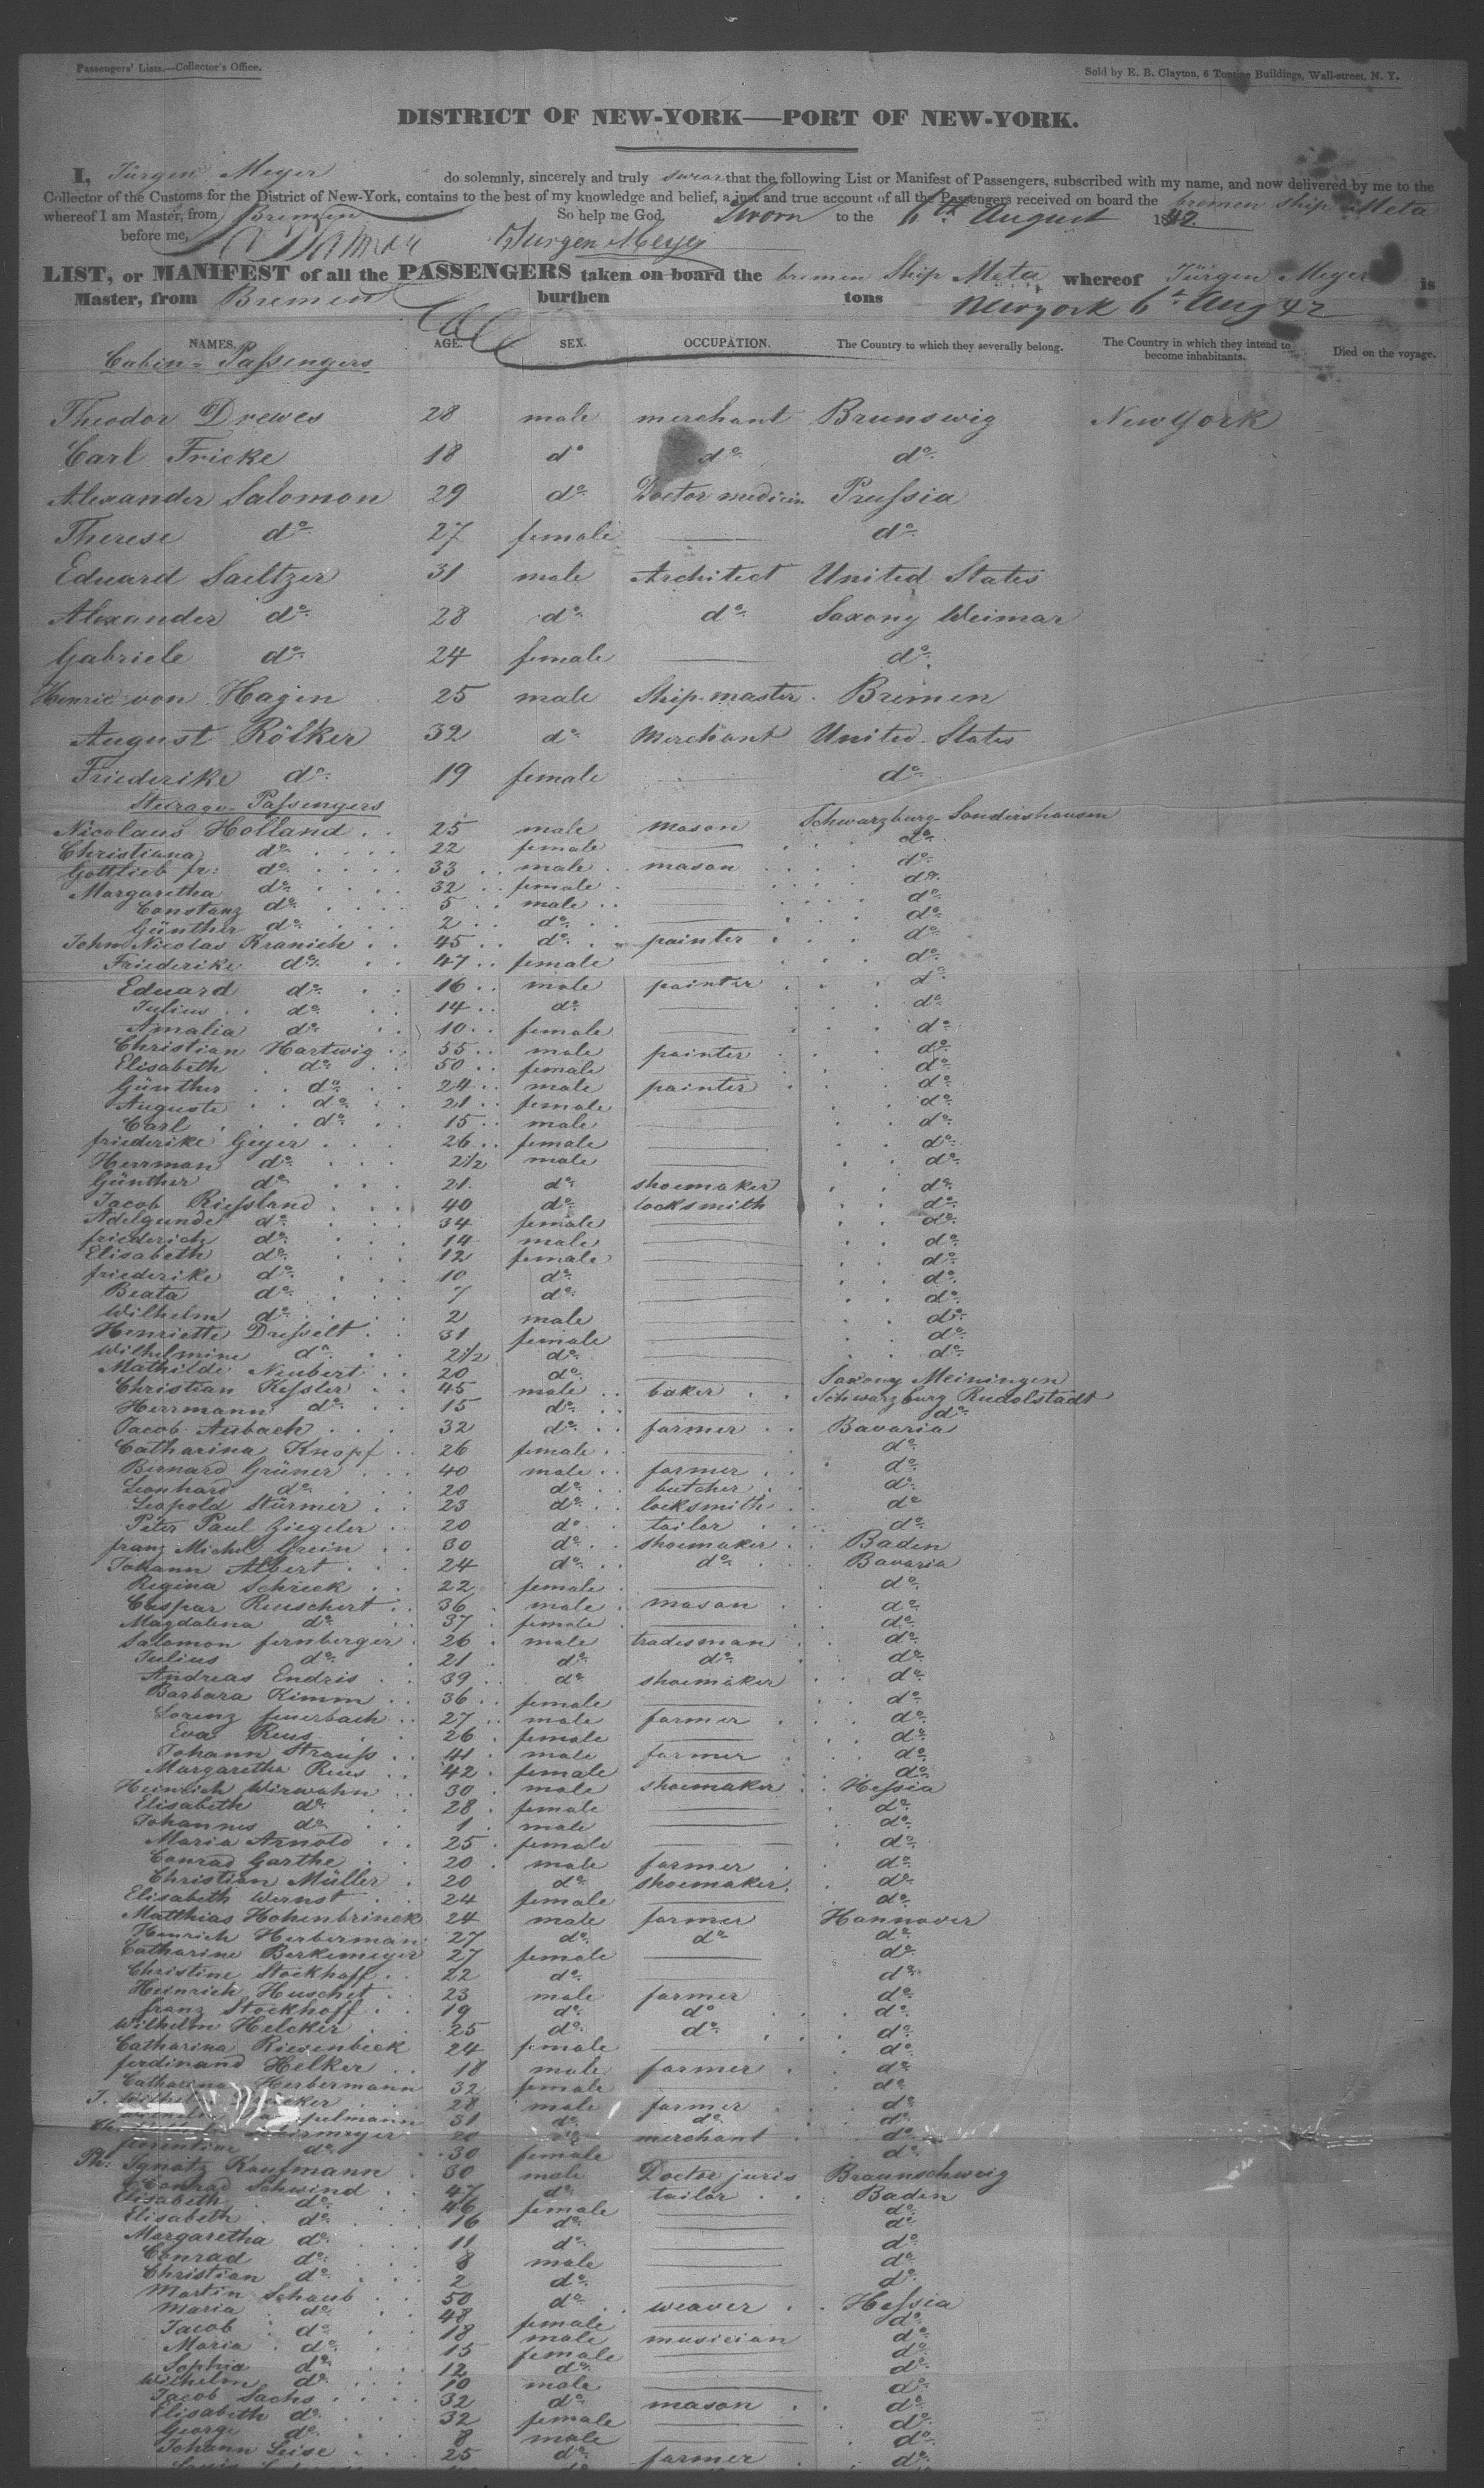 Passengers' Lists.—Collector's Office.
Sold by E. B. Clayton, 6 Tontine Buildings, Wall-street, N. Y.
DISTRICT OF NEW-YORK—PORT OF NEW-YORK.
I, Jürgen Meyer do solemnly, sincerely and truly swear that the following List or Manifest of Passengers, subscribed with my name, and now delivered by me to the
Collector of the Customs for the District of New-York, contains to the best of my knowledge and belief, a just and true account of all the Passengers received on board the bremen ship Meta
whereof I am Master, from Bremen So help me God. Sworn to the 6th August 1842
before me, Jurgen Meyer
LIST, or MANIFEST of all the PASSENGERS taken on board the bremen Ship Meta whereof Jürgen Meyer is
Master, from Bremen burthen tons Newyork 6th Aug 42
NAMES. AGE. SEX. OCCUPATION. The Country to which they severally belong. The Country in which they intend to become inhabitants. Died on the voyage.
Cabin-Passengers
Theodor Drewes 28 male merchant Brunswig New York
Carl Fricke 18 do do do
Alexander Salomon 29 do Doctor medicin Prussia
Therese do 27 female — do
Eduard Saeltzer 31 male Architect United States
Alexander do 28 do do Saxony Weimar
Gabriele do 24 female — do
Henric von Hagen 25 male Ship-master Bremen
August Rölker 32 do Merchant United States
Friederike do 19 female — do
Sterage-Passengers
Nicolaus Holland 25 male mason Schwarzburg Sondershausen
Christiana do 22 female — do
Gottlieb fr: do 33 male mason do
Margaretha do 32 female — do
Constanz do 5 male — do
Günther do 2 do — do
John Nicolas Kranich 45 do painter do
Friederike do 47 female — do
Eduard do 16 male painter do
Julius do 14 do — do
Amalia do 10 female — do
Christian Hartwig 55 male painter do
Elisabeth do 50 female — do
Günther do 24 male painter do
Auguste do 21 female — do
Carl do 15 male — do
friederike Geyer 26 female — do
Herrman do 2 1/2 male — do
Günther do 21 do shoemaker do
Jacob Riessland 40 do locksmith do
Adelgunde do 34 female — do
friederich do 14 male — do
Elisabeth do 12 female — do
friederike do 10 do — do
Beata do 7 do — do
Wilhelm do 2 male — do
Henriette Dresselt 31 female — do
Wilhelmine do 2 1/2 do — do
Mathilde Neubert 20 do — Saxony Meiningen
Christian Kessler 45 male baker Schwarzburg Rudolstadt
Herrmann do 15 do — do
Jacob Aubach 32 do farmer Bavaria
Catharina Knopf 26 female — do
Bernard Grüner 40 male farmer do
Leonhard do 20 do butcher do
Leopold Stürmer 23 do locksmith do
Peter Paul Ziegeler 20 do tailor do
franz Michel Grein 30 do shoemaker Baden
Johann Albert 24 do do Bavaria
Regina Schreck 22 female — do
Caspar Reuschert 36 male mason do
Magdalena do 37 female — do
Salomon fernberger 26 male tradesman do
Julius do 21 do do do
Andreas Endris 39 do shoemaker do
Barbara Kimm 36 female — do
Lorenz feuerbach 27 male farmer do
Eva Reus 26 female — do
Johann Strauss 41 male farmer do
Margaretha Reus 42 female — do
Heinrich Wirwahn 30 male shoemaker Hessia
Elisabeth do 28 female — do
Johannes do 1 male — do
Maria Arnold 25 female — do
Conrad Garthe 20 male farmer do
Christian Müller 20 do shoemaker do
Elisabeth Wernst 24 female — do
Matthias Hohenbrinck 24 male farmer Hannover
Heinrich Herberman 27 do do do
Catharine Berkemeyer 27 female — do
Christine Stockhoff 22 do — do
Heinrich Huschet 23 male farmer do
franz Stockhoff 19 do do do
Wilhelm Helcker 25 do do do
Catharina Riesenbeck 24 female — do
ferdinand Helker 18 male farmer do
Catharina Herbermann 32 female — do
J. 28 male farmer do
31 do do do
20 do merchant do
florentine do 30 female — do
Ph: Ignatz Kaufmann 30 male Doctor juris Braunschweig
Conrad Schwind 47 do tailor Baden
Elisabeth do 46 female — do
Elisabeth do 16 do — do
Margaretha do 11 do — do
Conrad do 8 male — do
Christian do 2 do — do
Martin Schaub 50 do weaver Hessia
Maria do 48 female — do
Jacob do 18 male musician do
Maria do 15 female — do
Sophia do 12 do — do
Wilhelm do 10 male — do
Jacob Sachs 32 do mason do
Elisabeth do 32 female — do
George do 8 male — do
Johann Leise 25 do farmer do